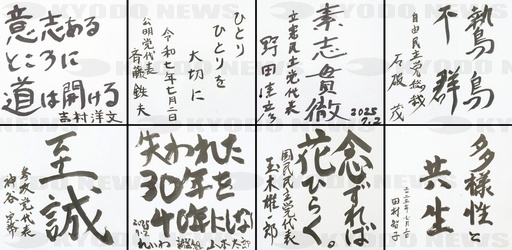 鷙鳥
不群
自由民主党総裁
石破 茂
素志貫徹
立憲民主党代表
野田佳彦
2025
7.2
ひとり
ひとりを
大切に
令和七年七月二日
公明党代表
斉藤鉄夫
意志ある
ところに
道は開ける
吉村洋文
多様性と
共生
二〇二五年七月二日
田村智子
念ずれば
花ひらく。
国民民主党代表
玉木雄一郎
失われた
30年を
40年にしない
2025
7.2
れいわ
山本太郎
至誠
参政党代表
神谷宗幣
KYODO NEWS